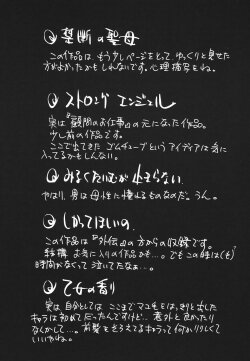 禁断の聖母
この作品は、もう少しページをとって、ゆっくりと見せた
方がよかったかもしれないです。心理描写をね。
ストロング エンジェル
実は『顧問のお仕事』の元になった作品。
少し前の作品です。
ここで出てきた ゴムチューブというアイディアは気に
入ってるかもしんない。
みるくたいむが止まらない
やはり、男は母性に憧れるものなのだ。うん。
しかってほしいの
この作品は『外伝』の方からの収録です。
結構 お気に入りの作品かも…。でもこの時は(も)
時間がなくって泣いてたなぁ…。
乙女の香り
実は 自分としては ここまでマユ毛をはっきりと出した
キャラは初めてだったんですけど… 意外と良かったり
なんかして…。前髪をそろえてるキャラって何かかわいくて
いいやね。